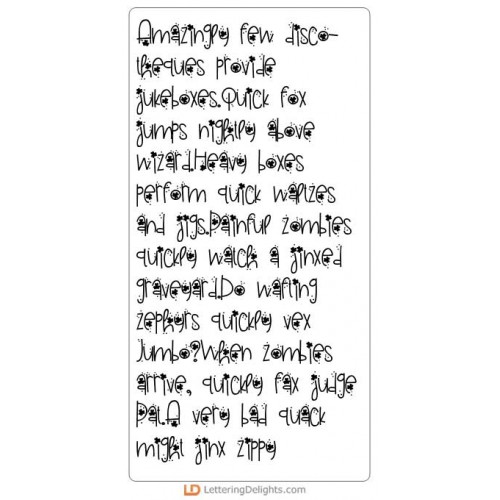 Amazingly few disco-
theques provide
jukeboxes.Quick fox
jumps nightly above
wizard.Heavy boxes
perform quick waltzes
and jigs.Painful zombies
quickly watch a jinxed
graveyard.Do wafting
zephyrs quickly vex
Jumbo?When zombies
arrive, quickly fax judge
Pat.A very bad quack
might jinx zippy
LD LetteringDelights.com